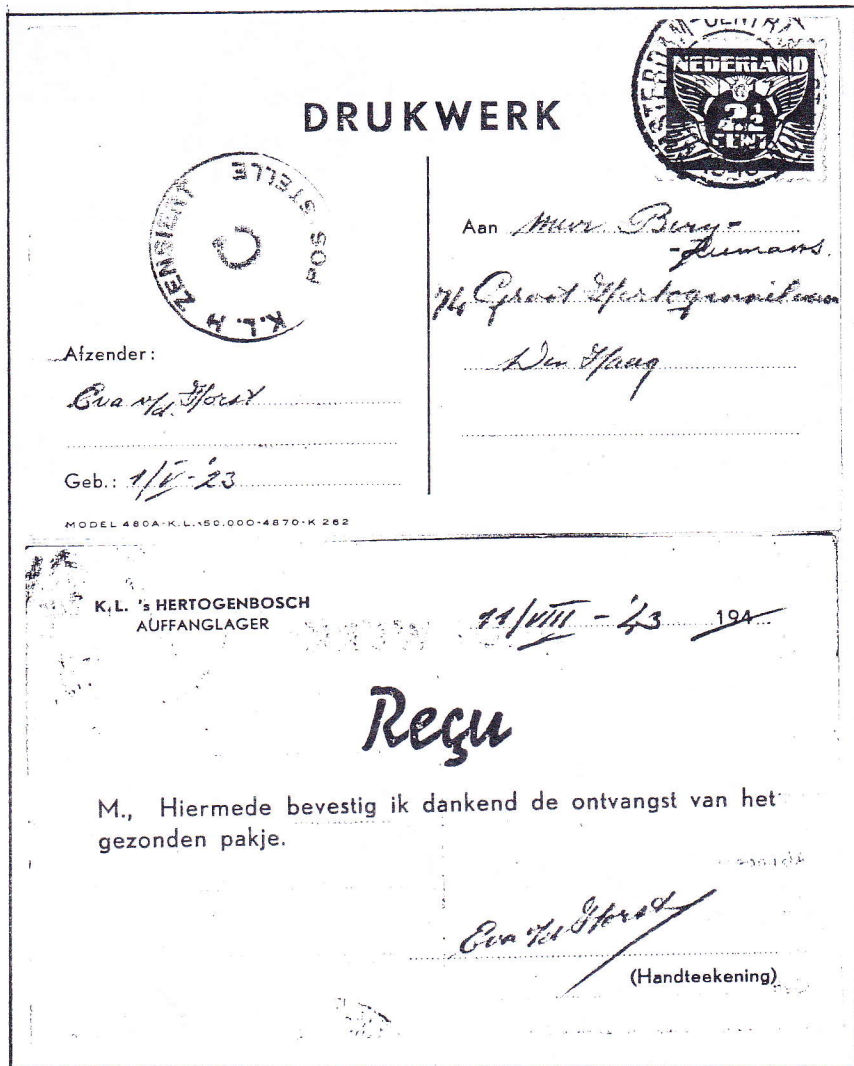 DRUKWERK
NEDERLAND
2½
CENT
K.L.H ZENSIERT
POSTSTELLE
Aan Mevr. Berg-
74 Groot Hertoginnelaan
Den Haag
Afzender:
Eva v/d. Horst
Geb.: 1/V-'23
MODEL 480A-K.L.-50.000-4870-K 262
K.L. 's HERTOGENBOSCH
AUFFANGLAGER
11/VIII - '43 194
Reçu
M., Hiermede bevestig ik dankend de ontvangst van het
gezonden pakje.
Eva v/d Horst
(Handteekening)